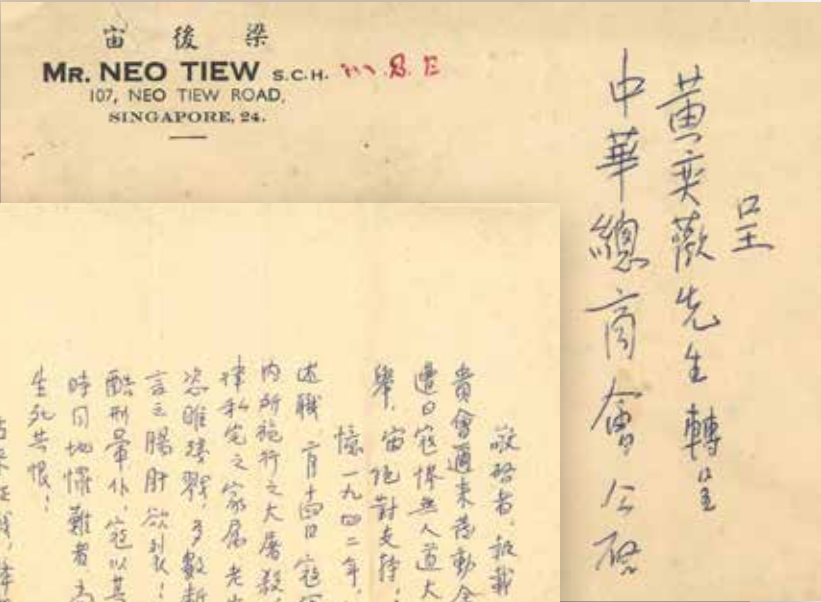 宙 後 梁
MR. NEO TIEW S.C.H. M.B.E
107, NEO TIEW ROAD,
SINGAPORE, 24.
呈
黃奕歡先生轉呈
中華總商會公啓
敬啓者,報載
貴會邇來發動全
遭日寇慘無人道大
舉,宙絕對支持,
憶一九四二年,
述職,
內所施行之大屠殺,
律私宅之家属老
恣睢殘戮,多數
言之腸肝欲裂!
酷刑暈仆,寇以其
時同地罹難者
生死共恨!